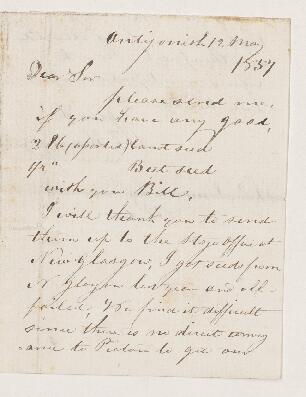 Antigonish 12 May
1857
Dear Sir
please send me,
if you have any good,
3 lb (Imported) Carrot seed
1/4 " Beet seed
with your Bill,
I will thank you to send
them up to the Stage office at
New Glasgow, I got seeds from
N Glasgow last year and all
failed, We find it difficult
since there is no direct convey
ance to Pictou to get our